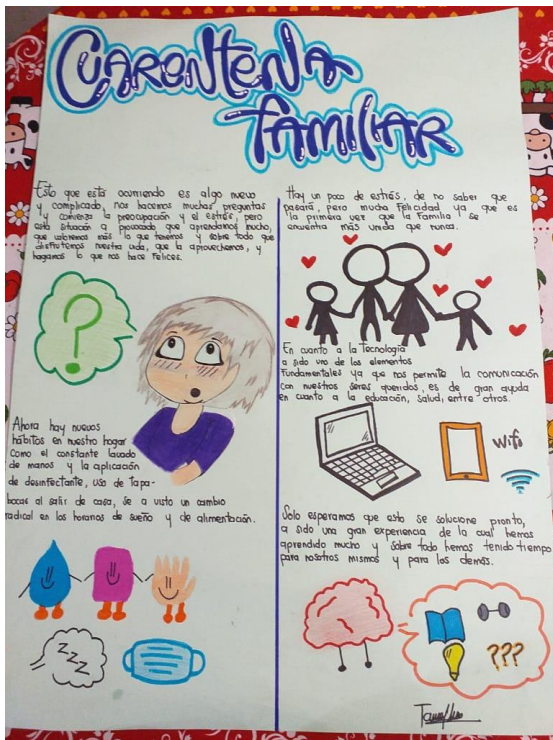 CUARENTENA
FAMILIAR
Esto que está ocurriendo es algo nuevo
y complicado, nos hacemos muchas preguntas
y comienza la preocupación y el estrés, pero
esta situación a provocado que aprendamos mucho,
que valoremos más lo que tenemos y sobre todo que
disfrutemos nuestra vida, que la aprovechemos, y
hagamos lo que nos hace felices.
?
Ahora hay nuevos
hábitos en nuestro hogar
como el constante lavado
de manos y la aplicación
de desinfectante, uso de tapa-
bocas al salir de casa, se a visto un cambio
radical en los horarios de sueño y de alimentación.
z z z
Hay un poco de estrés, de no saber que
pasará, pero mucha Felicidad ya que es
la primera vez que la Familia se
encuentra más unida que nunca.
En cuanto a la tecnología
a sido uno de los elementos
Fundamentales ya que nos permite la comunicación
con nuestros seres queridos, es de gran ayuda
en cuanto a la educación, salud, entre otros.
Wifi
Solo esperamos que esto se solucione pronto,
a sido una gran experiencia de la cual hemos
aprendido mucho y sobre todo hemos tenido tiempo
para nosotros mismos y para los demás.
???